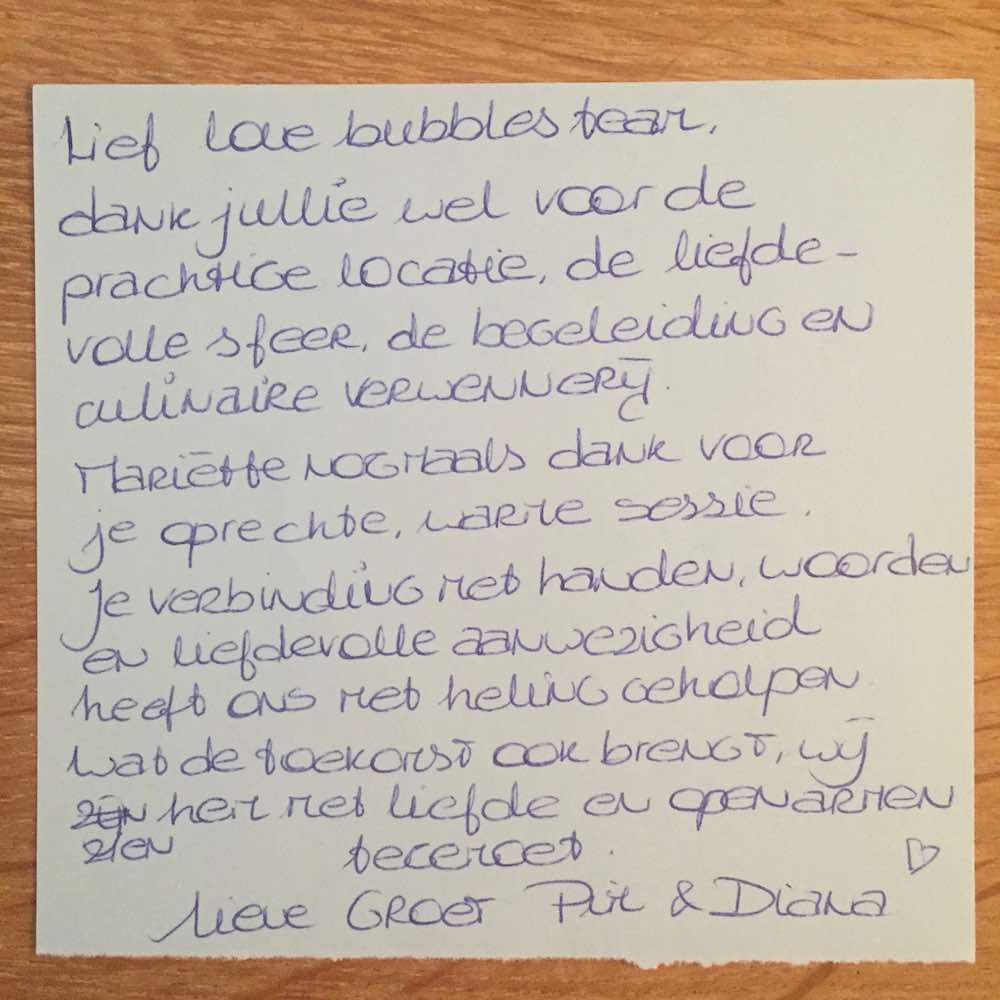 Lief love bubbles team,
dank jullie wel voor de
prachtige locatie, de liefde-
volle sfeer, de begeleiding en
culinaire verwennerij.
Mariëtte nogmaals dank voor
je oprechte, warme sessie.
Je verbinding met handen, woorden
en liefdevolle aanwezigheid
heeft ons met heling geholpen
wat de toekomst ook brengt, wij
zijn hem met liefde en open armen
zien tegemoet.
Lieve Groet & Diana